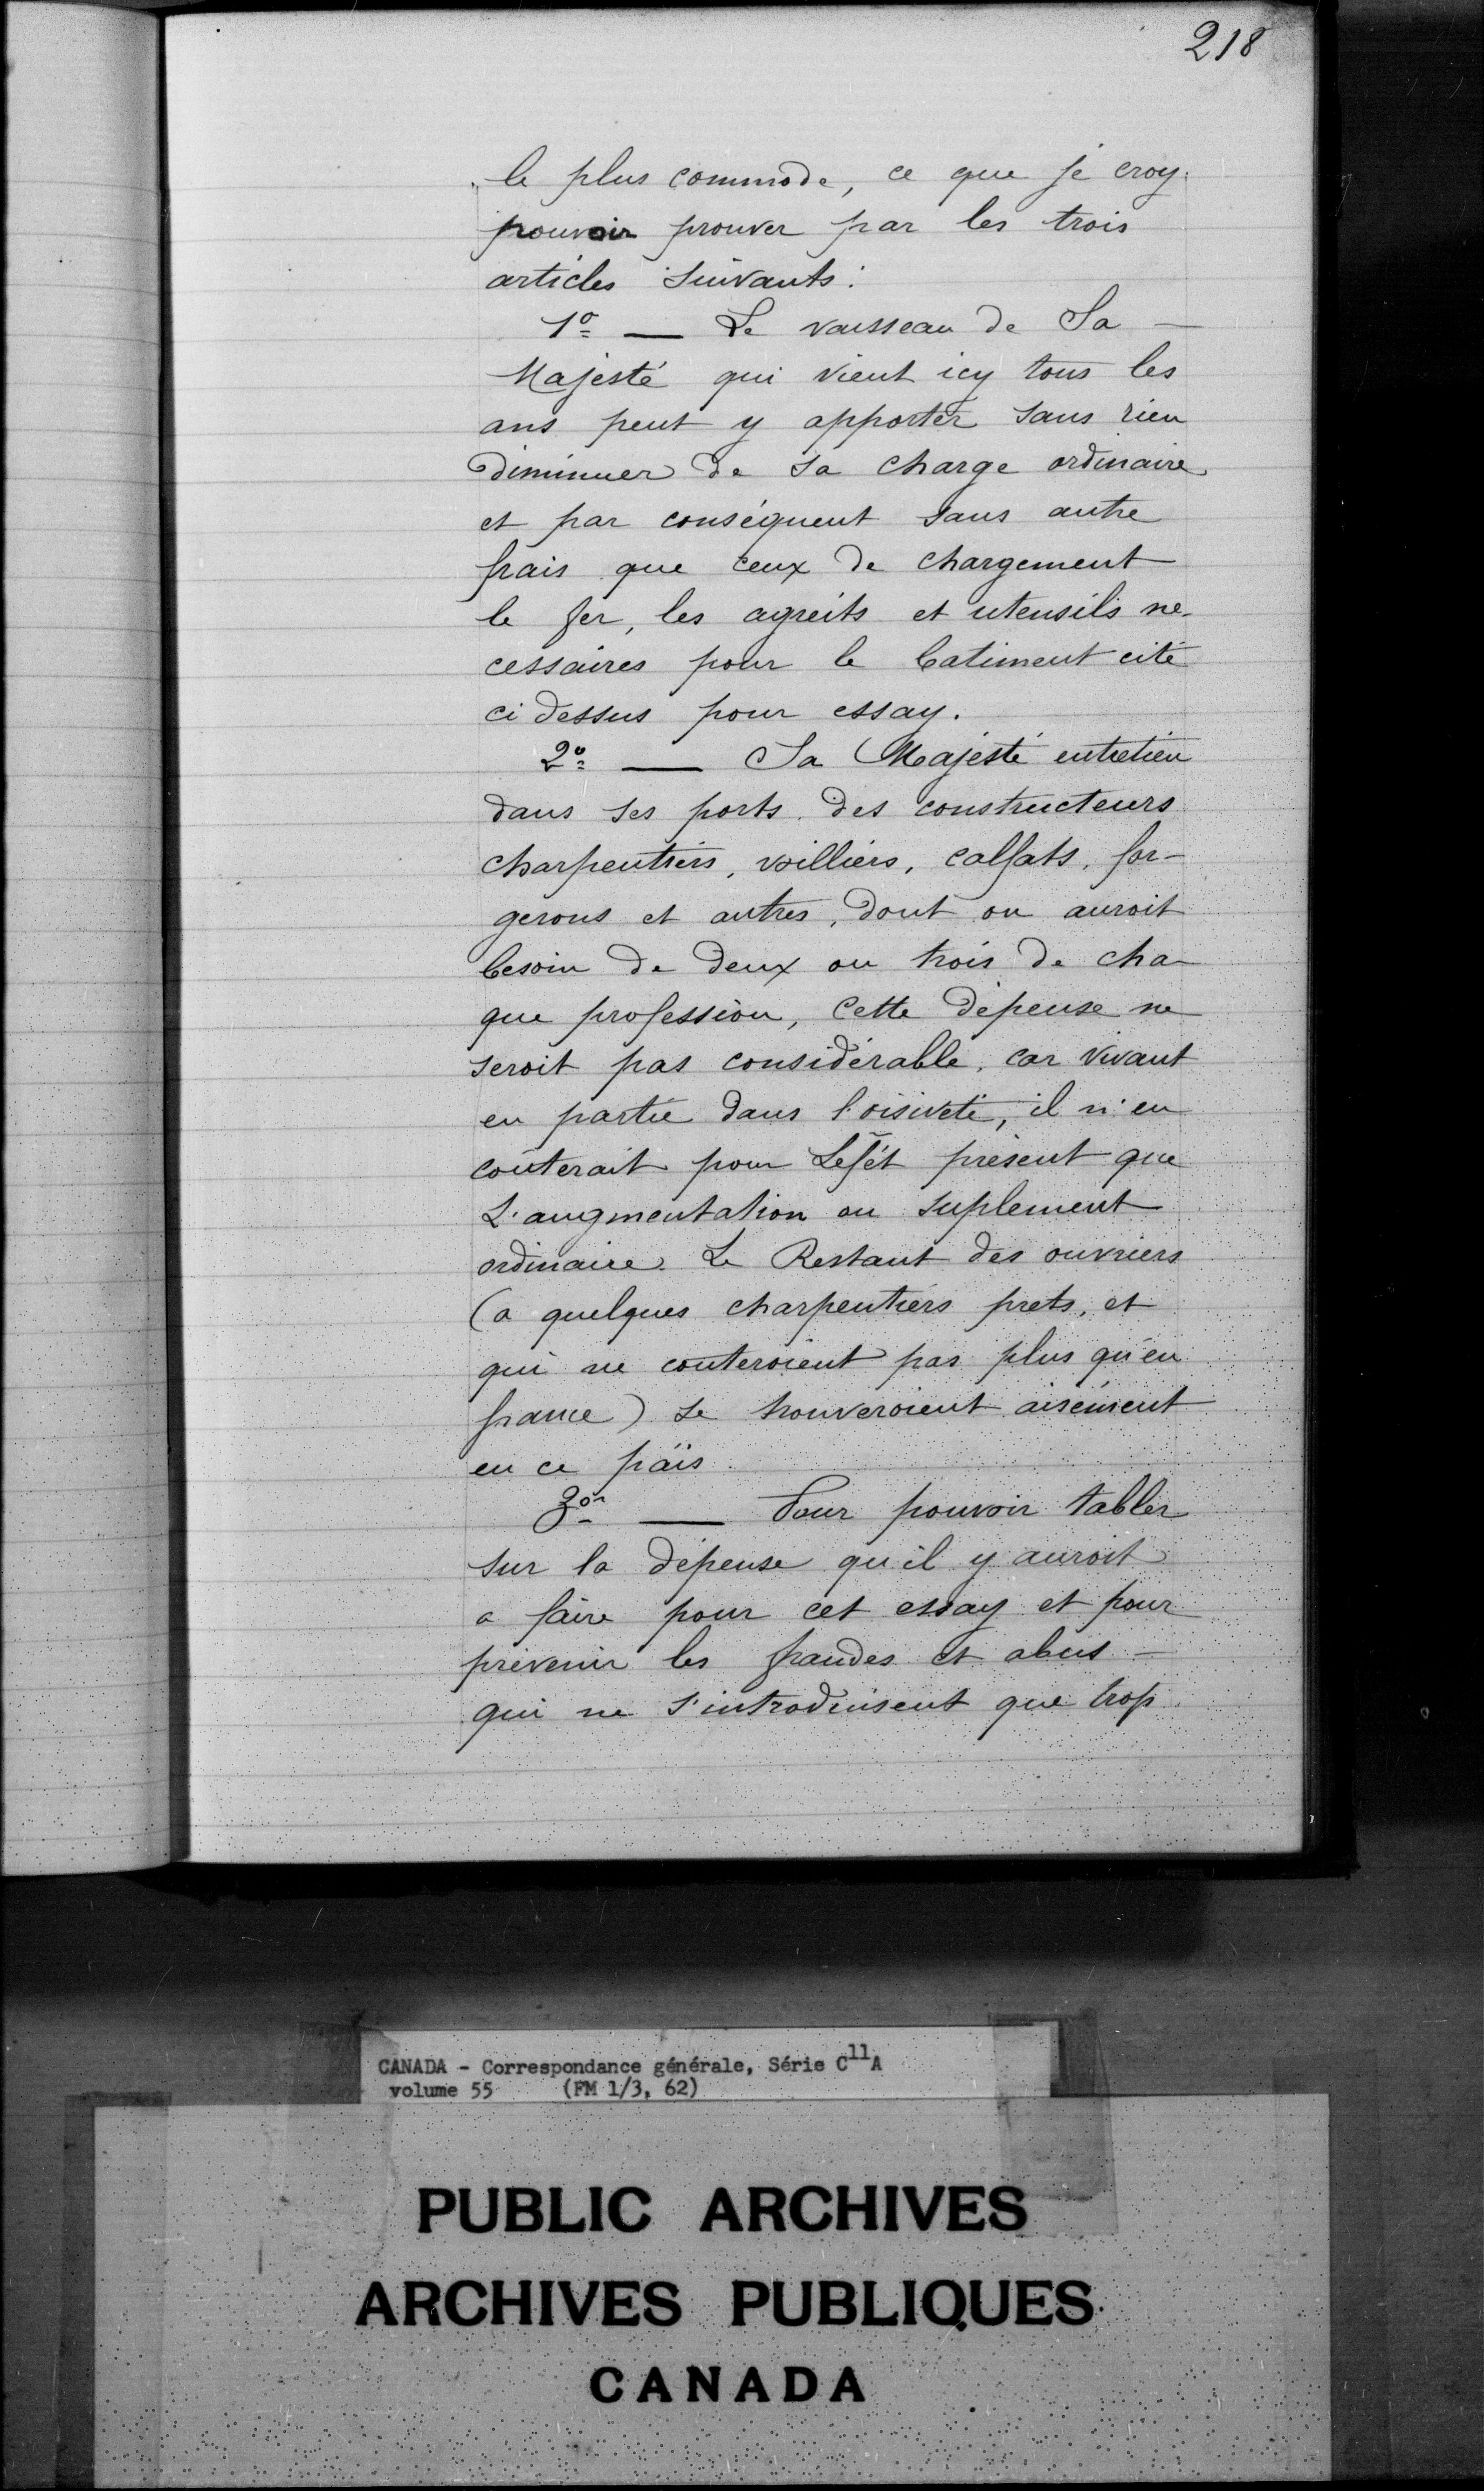 218
le plus commode, ce que je croy
pouvoir prouver par les trois
articles suivants :
1º — Le vaisseau de Sa —
Majesté qui vient icy tous les
ans peut y apporter sans rien
diminuer de sa charge ordinaire
et par conséquent sans autre
frais que ceux de chargement
le fer, les agreits et utensils ne-
cessaires pour le batiment cité
ci dessus pour essay.
2º — Sa Majesté entretien
dans ses ports des constructeurs
charpentiers, voilliers, calfats, for-
gerons et autres, dont on auroit
besoin de deux ou trois de cha-
que profession, cette dépense ne
seroit pas considérable, car vivant
en partie dans l'oisiveté, il n'en
coûterait pour Lefét présent que
L'augmentation ou suplement
ordinaire. Le Restant des ouvriers
(a quelques charpentiers prets, et
qui ne couteroient pas plus qu'en
france) se trouveroient aisément
en ce païs.
3º — Pour pouvoir tabler
sur la dépense qu'il y auroit
a faire pour cet essay et pour
prévenir les fraudes et abus —
qui ne s'introduisent que trop
CANADA - Correspondance générale, Série C11A
volume 55 (FM 1/3, 62)
PUBLIC ARCHIVES
ARCHIVES PUBLIQUES
CANADA